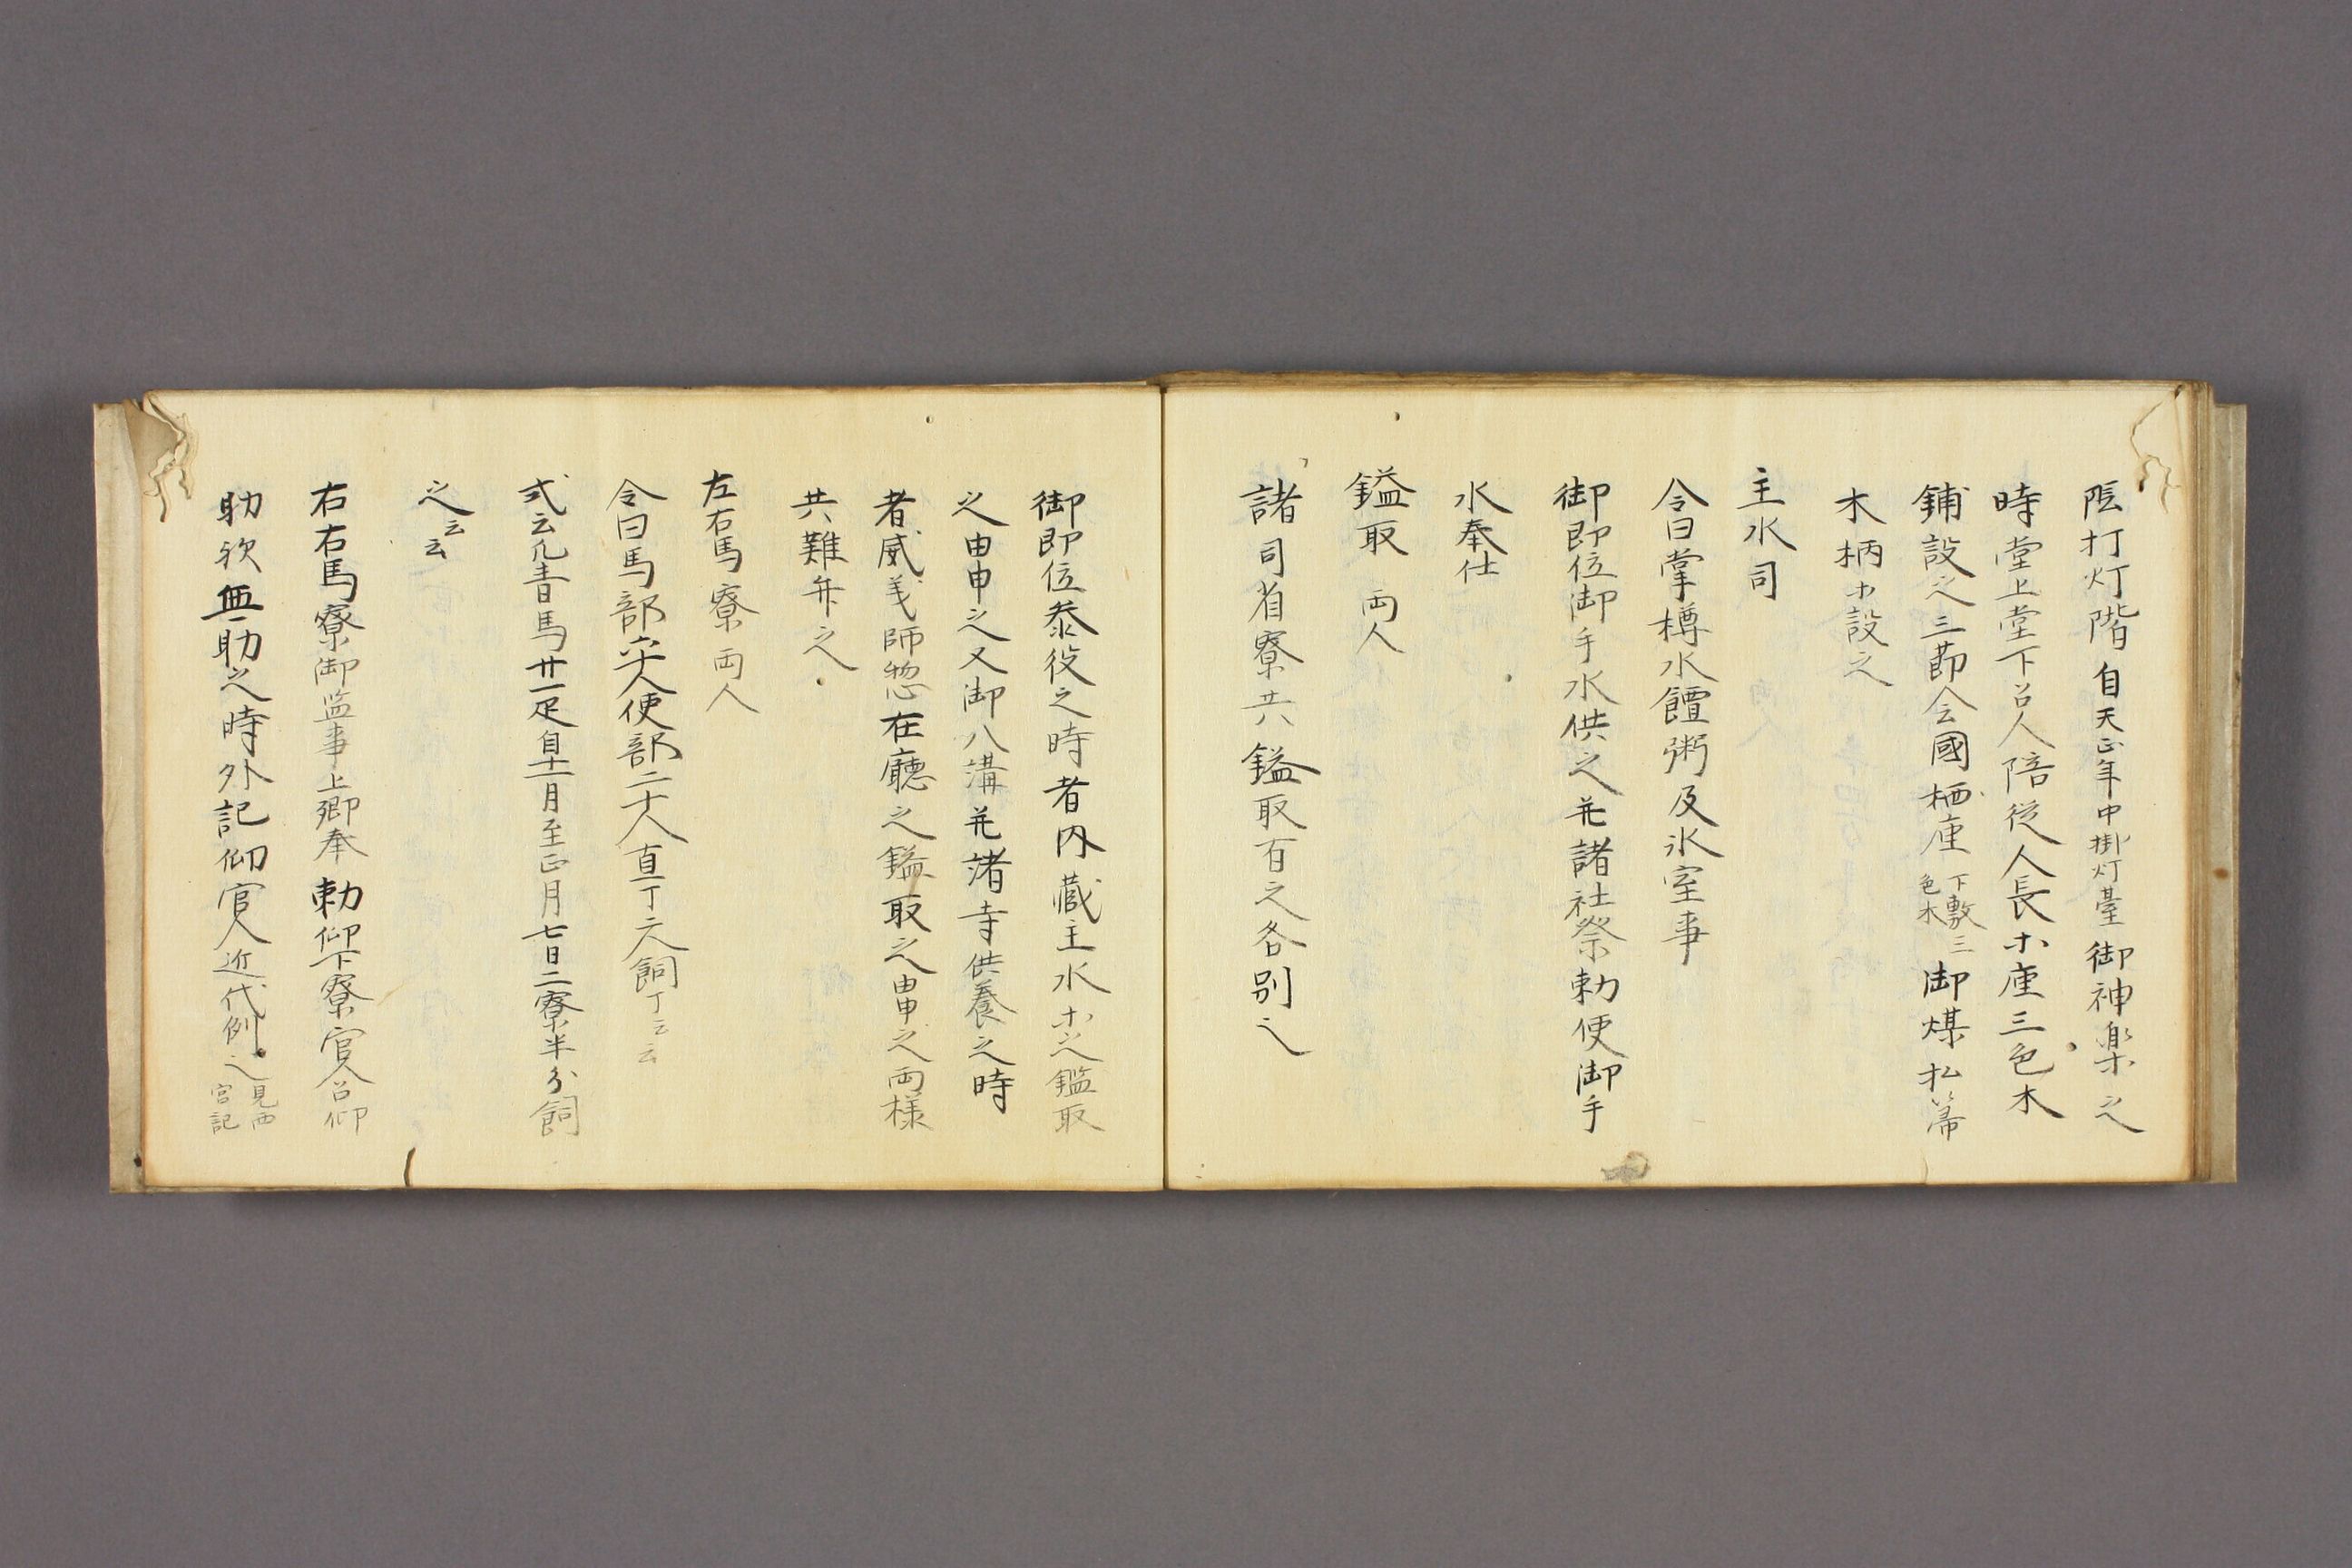 陰打灯階自天正年中掛灯臺御神楽之
時堂上堂下召人陪従人長ホ座三色木
鋪設之三節会國栖座下敷三色木御煤払箒
木柄ホ設之
主水司
令曰掌樽水饘粥及氷室事
御即位御手水供之并諸社祭勅使御手
水奉仕
鎰取 両人
諸司省寮共鎰取百之各別之
御即位参役之時者内蔵主水ホ之鑑取
之由申之又御八講并諸寺供養之時
者威義師惣在廳之鎰取之由申之両様
共難弁之
左右馬寮 両人
令曰馬部六十人使部二十人直丁二人飼丁云云
式云凡青馬廿一疋自十一月至正月七日二寮半分飼
之云云
右右馬寮御監事上卿奉 勅仰下寮官人召仰
助欤無助之時外記仰官人近代例之見西宮記